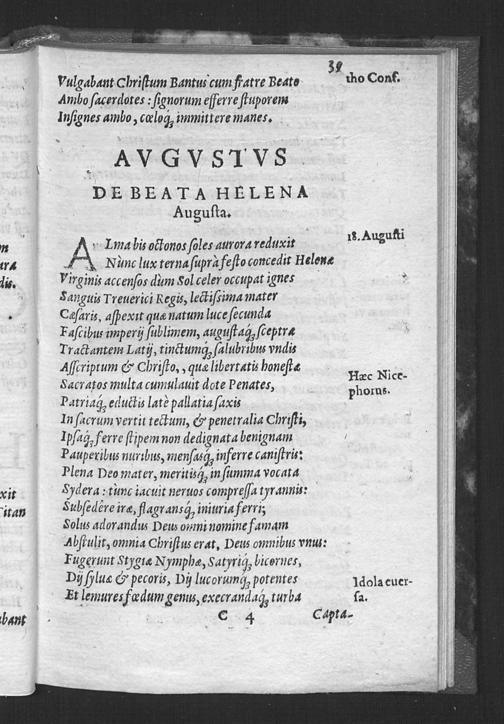 39
Vulgabant Christum Bantus cum fratre Beato
tho Conf.
Ambo sacerdotes : signorum efferre stuporem
Insignes ambo, cœloq́; immittere manes.
AVGVSTVS
DE BEATA HELENA
Augusta.
18. Augusti
ALma bis octonos soles aurora reduxit
Nùnc lux terna suprà festo concedit Helenæ
Virginis accensos dùm Sol celer occupat ignes
Sanguis Treuerici Regis, lectissima mater
Cæsaris, aspexit quæ natum luce secunda
Fascibus imperij sublimem, augustaq́; sceptra
Tractantem Latij, tinctumq́; salubribus vndis
Asscriptum & Christo, , quæ libertatis honestæ
Hæc Nice-
phorus.
Sacratos multa cumulauit dote Penates,
Patriaq́; eductis latè pallatia saxis
In sacrum vertit tectum, & penetralia Christi,
Ipsaq́; ferre stipem non dedignata benignam
Pauperibus nuribus, mensasq́; inferre canistris:
Plena Deo mater, meritisq́; in summa vocata
Sydera : tùnc iacuit neruos compressa tyrannis:
Subsedêre iræ, flagransq́; iniuria ferri;
Solus adorandus Deus omni nomine famam
Abstulit, omnia Christus erat, Deus omnibus vnus:
Fugerunt Stygiæ Nymphæ, Satyriq́; bicornes,
Dij syluæ & pecoris, Dij lucorumq́; potentes
Idola euer-
sa.
Et lemures fœdum genus, execrandaq́; turba
C 4
Capta-